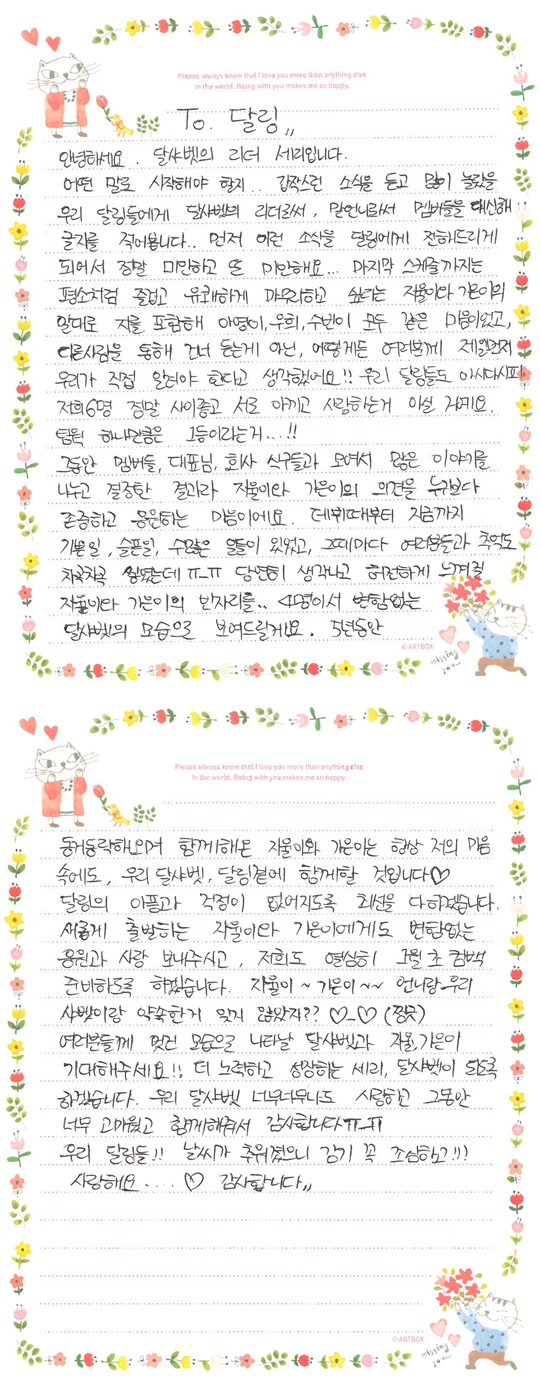 Please always know that I love you more than anything else
in the world. Being with you makes me so happy.
To. 달링,,
안녕하세요. 달샤벳의 리더 세리입니다.
어떤 말로 시작해야 할지.. 갑작스런 소식을 듣고 많이 놀랐을
우리 달링들에게 달샤벳의 리더로서, 맏언니로서 멤버들을 대신해
글자를 적어봅니다.. 먼저 이런 소식을 달링에게 전해드리게
되어서 정말 미안하고 또 미안해요... 마지막 스케줄까지는
평소처럼 즐겁고 유쾌하게 마무리하고 싶다는 지율이와 가은이의
말대로 저를 포함해 아영이, 우희, 수빈이 모두 같은 마음이었고,
다른사람을 통해 건너 듣는게 아닌, 어떻게든 여러분께 제일먼저
우리가 직접 알려야 한다고 생각했어요!! 우리 달링들도 아시다시피
저희6명 정말 사이좋고 서로 아끼고 사랑하는거 아실 거예요.
팀웍 하나만큼은 1등이라는거...!!
그동안 멤버들, 대표님, 회사 식구들과 모여서 많은 이야기를
나누고 결정한 결과라 지율이와 가은이의 의견을 누구보다
존중하고 응원하는 마음이에요. 데뷔때부터 지금까지
기쁜일, 슬픈일, 수많은 일들이 있었고, 그때마다 여러분들과 추억도
차곡차곡 쌓였는데 ㅠ_ㅠ 당연히 생각나고 허전하게 느껴질
지율이와 가은이의 빈자리를.. 4명이서 변함없는
달샤벳의 모습으로 보여드릴게요. 5년동안
©ARTBOX
missing
you...
Please always know that I love you more than anything else
in the world. Being with you makes me so happy.
동거동락하으며 함께해온 지율이와 가은이는 항상 저의 마음
속에도, 우리 달샤벳, 달링곁에 함께할 것입니다♡
달링의 아픔과 걱정이 없어지도록 최선을 다하겠습니다.
새롭게 출발하는 지율이와 가은이에게도 변함없는
응원과 사랑 보내주시고, 저희도 열심히 1월 초 컴백
준비하도록 하겠습니다. 지율이~가은이~~ 언니랑-우리
샤벳이랑 약속한거 잊지 않았지?? ♡_♡ (찡긋)
여러분들께 멋진 모습으로 나타날 달샤벳과 지율,가은이
기대해주세요!! 더 노력하고 성장하는 세리, 달샤벳이 되도록
하겠습니다. 우리 달샤벳 너무너무너무 사랑하고 그동안
너무 고마웠고 함께해줘서 감사합니다ㅠ-ㅠ
우리 달링들!! 날씨가 추워졌으니 감기 꼭 조심하고!!!
사랑해요.... ♡ 감사합니다,,
©ARTBOX
missing
you...